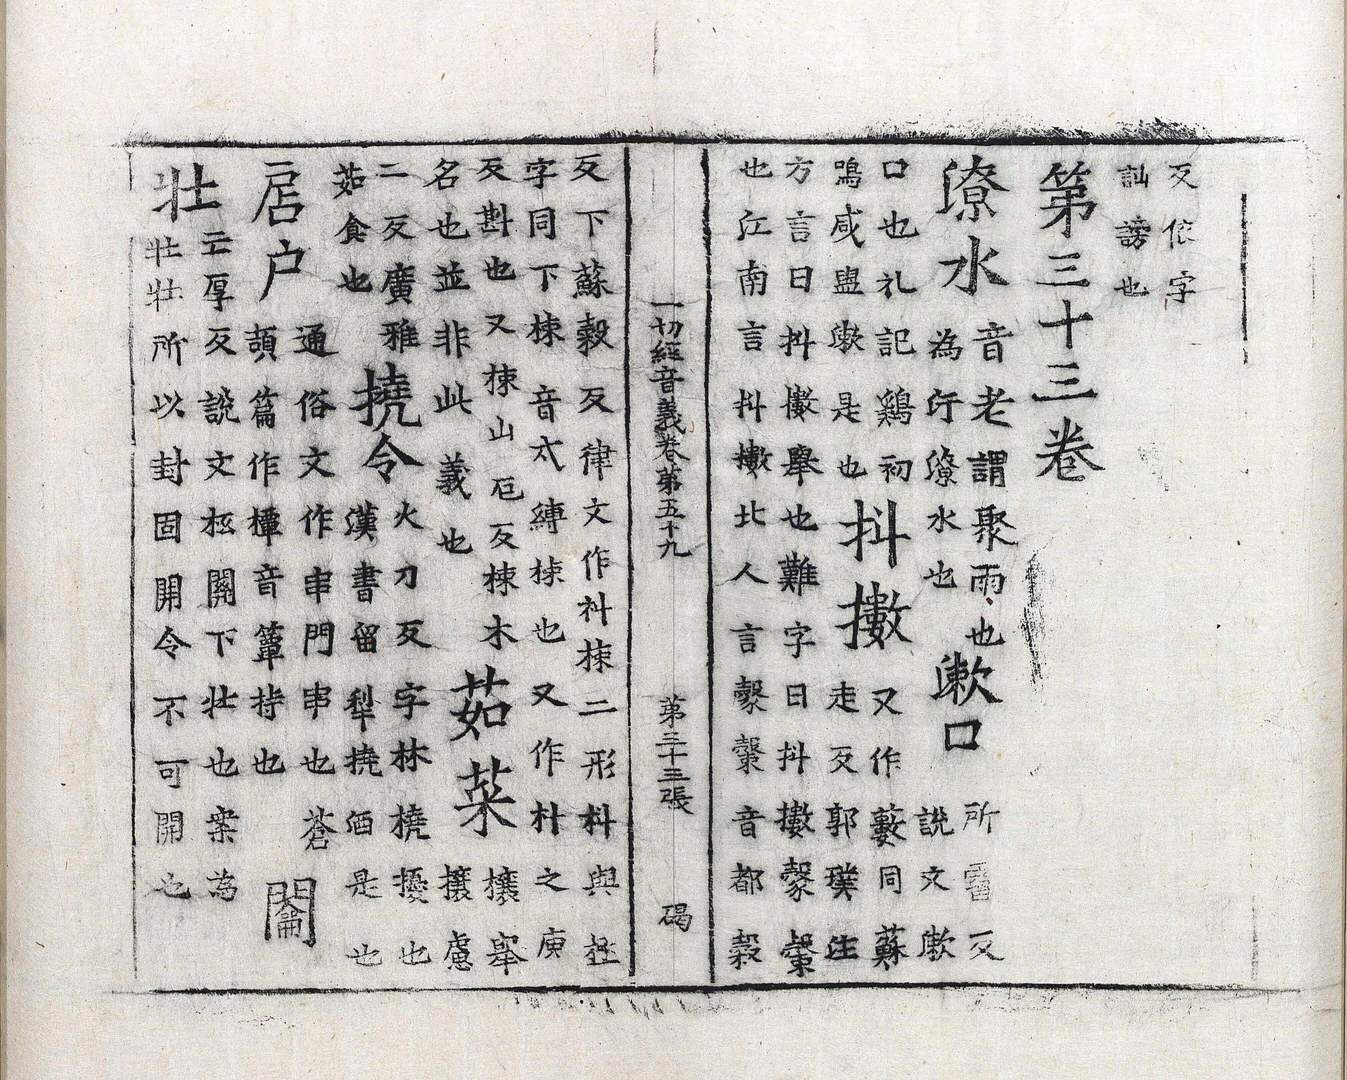 反依字
訕謗也
第三十三卷
潦水
音老謂聚雨、也
為汙潦水也
漱口
所霤反
說文漱
口也礼記鷄初
鳴咸盥漱是也
抖擻
又作藪同蘇
走反郭璞注
方言曰抖擻舉也難字曰抖擻㲉㯱
也江南言抖擻北人言㲉㯱音都穀
一切經音義卷第五十九 第三十三張 碣
反下蘇穀反律文作枓捒二形枓與拯
字同下捒音太縛捒也又作枓之庾
反斟也又捒山厄反捒木
名也並非此義也
茹菜
攘舉
攘慮
二反廣雅
茹食也
撓令
火刀反字林橈擾也
漢書留犁撓酒是也
扂户
通俗文作串門串也蒼
頡篇作橝音簞持也
闔
牡
亡厚反說文極關下牡也案為
牡牡所以封固關令不可開也